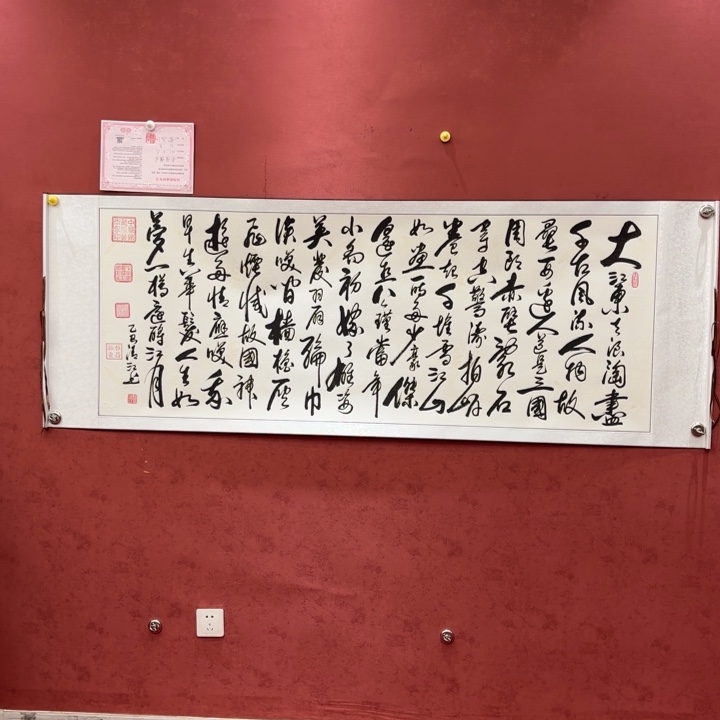 大江東去浪淘盡
千古風流人物故
壘西邊人道是三國
周郎赤壁亂石
穿空驚濤拍岸
卷起千堆雪江山
如畫一時多少豪傑
遙想公瑾當年
小喬初嫁了雄姿
英發羽扇綸巾
談笑間檣櫓灰
飛煙滅故國神
遊多情應笑我
早生華髮人生如
夢一樽還酹江月
乙巳清江